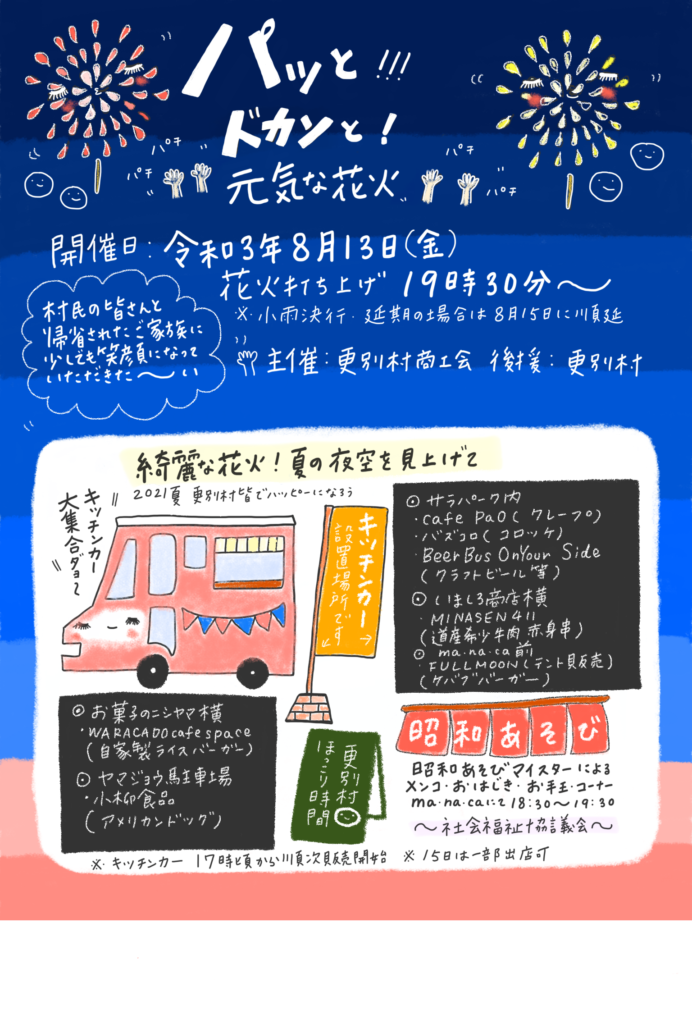 パッと!!!
ドカンと!
パチ
パチ
パチ
パチ
元気な花火
開催日:令和3年8月13日(金)
花火打ち上げ 19時30分〜
※小雨決行・延期の場合は8月15日に順延
村民の皆さんと
帰省されたご家族に
少しでも笑顔になって
いただきた〜い
主催:更別村商工会 後援:更別村
綺麗な花火!夏の夜空を見上げて
2021夏 更別村皆でハッピーになろう
キッチンカー
大集合ダョ〜
キッチンカー
設置場所です
⊙サラパーク内
・cafe PaO(クレープ)
・バズコロ(コロッケ)
・Beer Bus On Your Side
(クラフトビール等)
⊙いましろ商店横
・MINASEN 411
(道産希少牛肉 赤身串)
⊙ma・na・ca前
・FULLMOON(テント販売)
(ケバブバーガー)
⊙お菓子のニシヤマ横
・WARACADO cafe space
(自家製ライスバーガー)
⊙ヤマジョウ駐車場
・小柳食品
(アメリカンドッグ)
更別村
ほっこり時間
昭和あそび
昭和あそびマイスターによる
メンコ・おはじき・お手玉・コーナー
ma・na・caにて18:30〜19:30
〜社会福祉協議会〜
※キッチンカー 17時頃から順次販売開始 ※15日は一部出店可